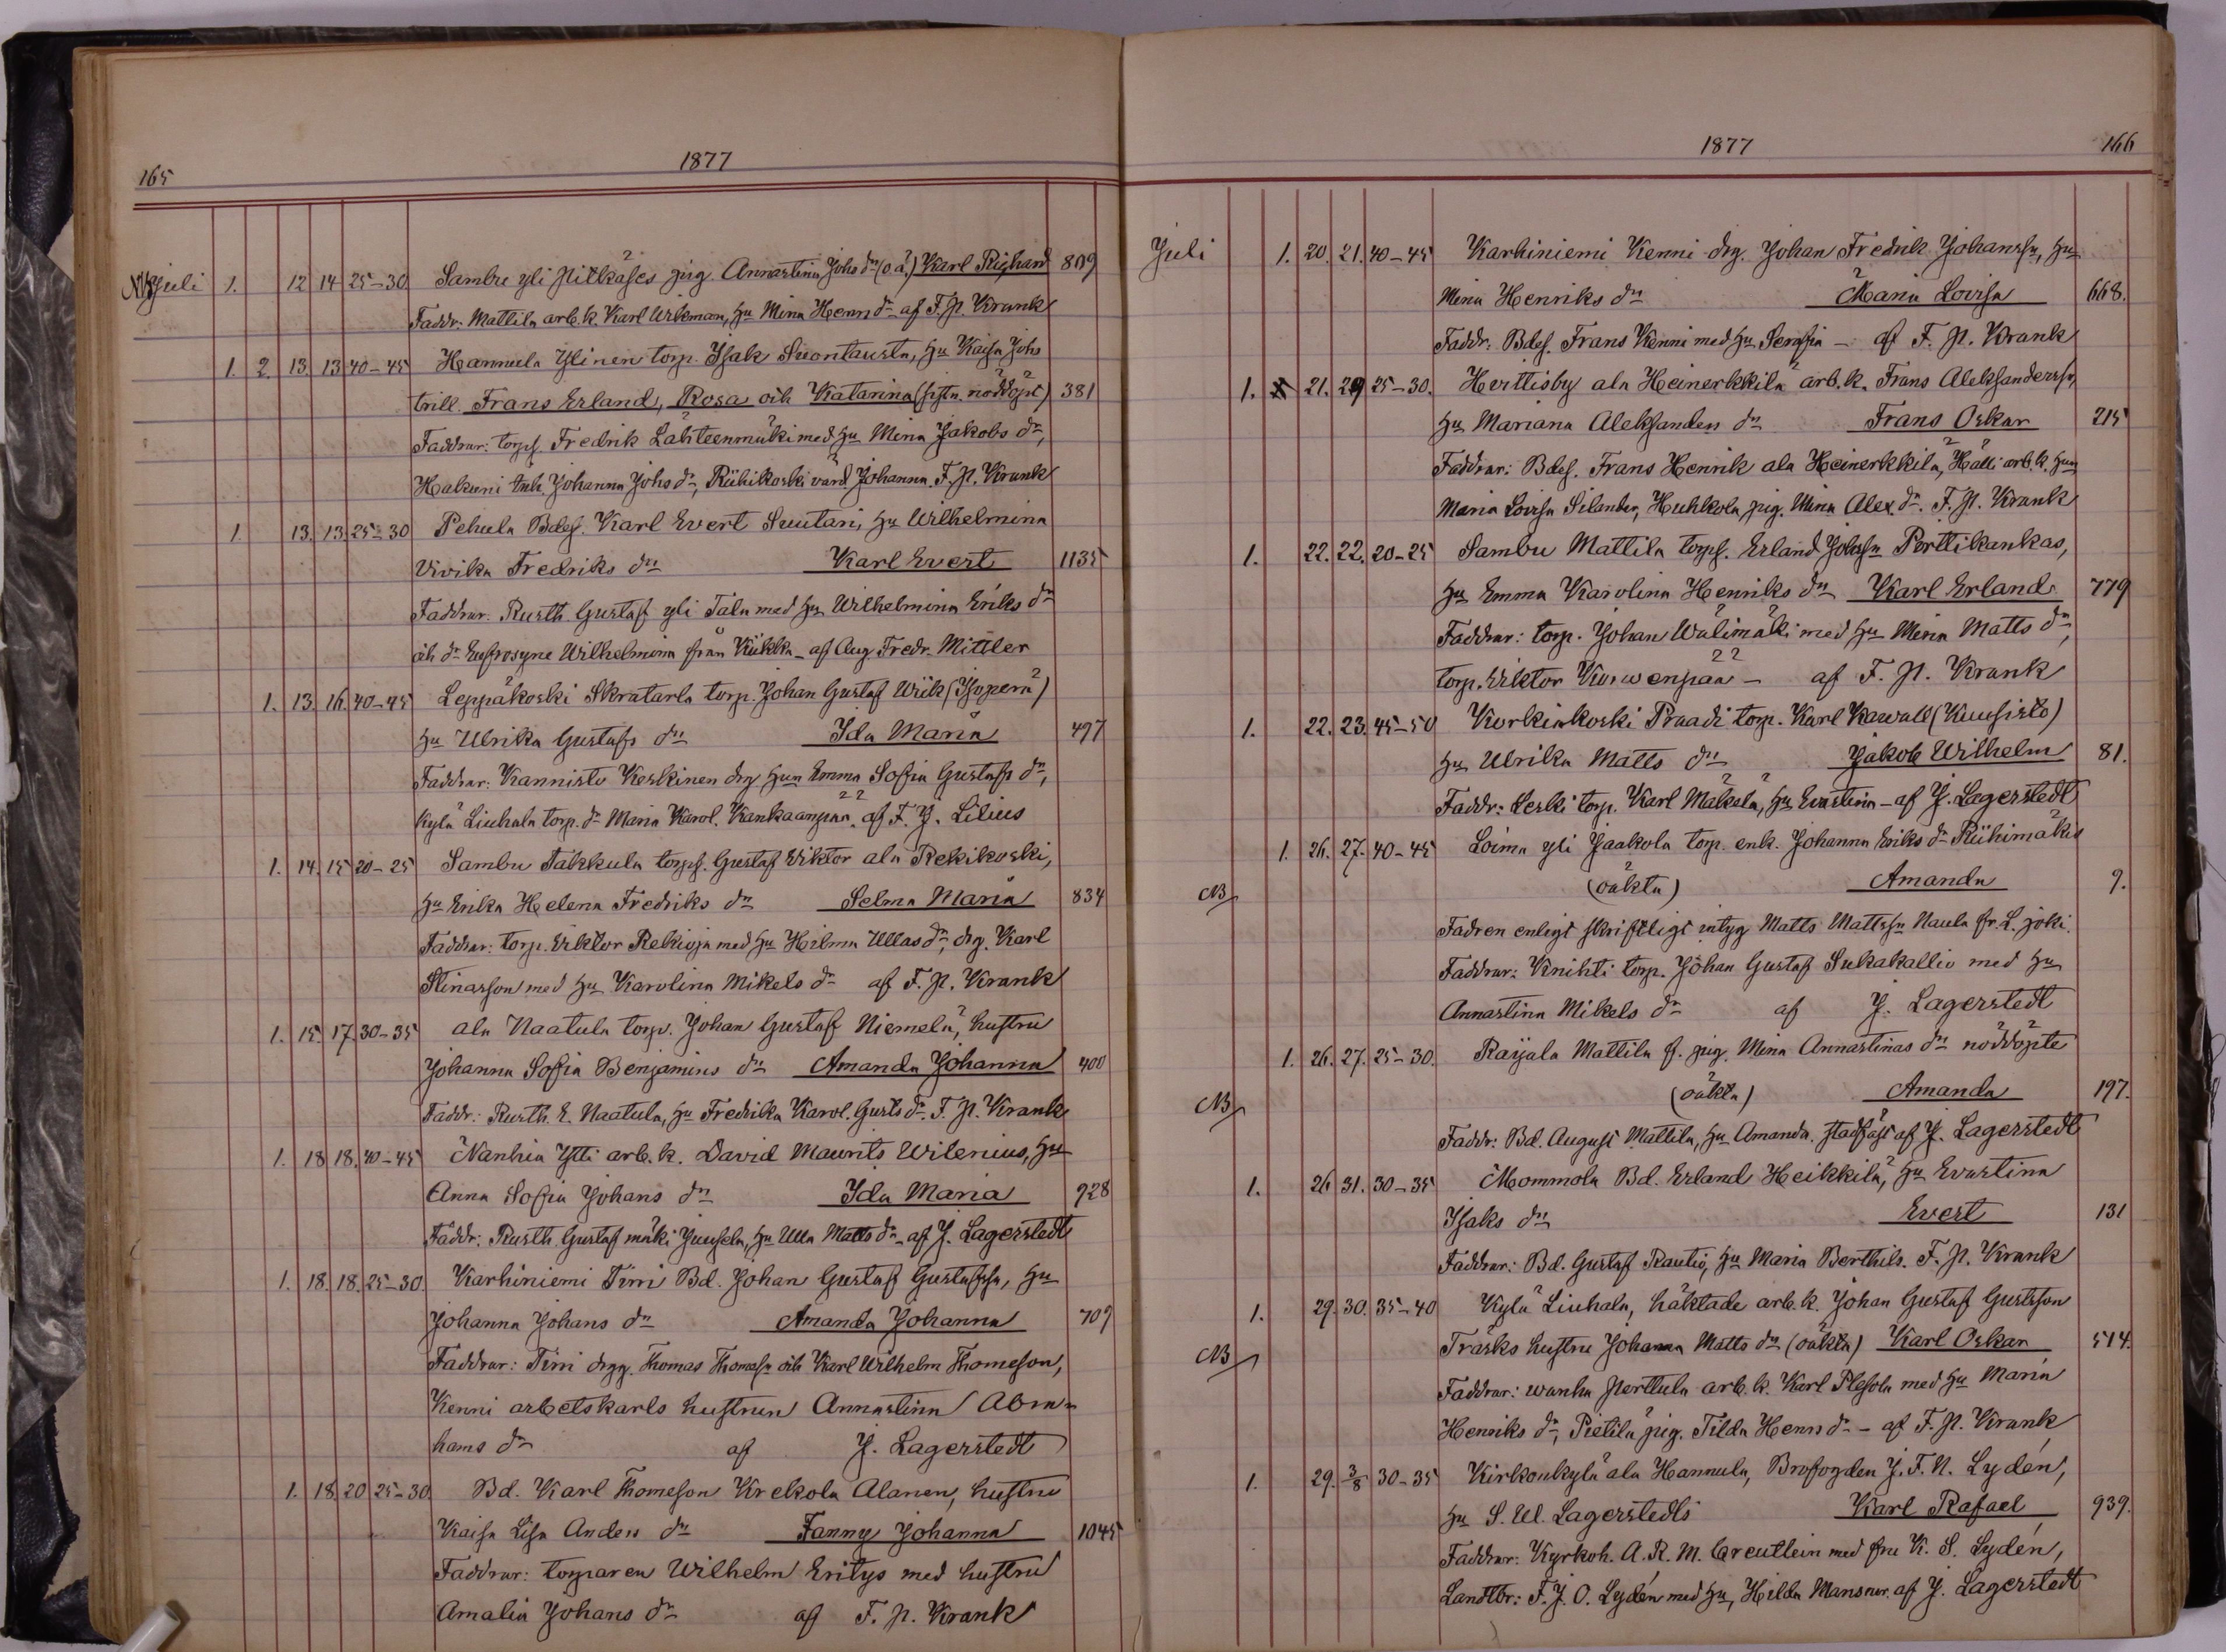 165
1877
NB Juli 1. 12 14 25-30 Sambu yli Pitkäses pig. Annastina Johs dr (o.ä.) Karl Rickard 809
Faddr. Mattila arb.k. Karl Wikman, hu Mina Henrs dr af F. P. Krank
1. 2. 13. 13 40-45 Hannula Ylinen torp. Isak Suontausta, hu Kaisa Johs
trill. Frans Erland, Rosa och Katarina (sista nöddöpt) 381
Faddrar: torps. Fredrik Lähteenmäki med hu Mina Jakobs dr,
Hakuni inh. Johanna Johs dr, Riihikoski värd. Johanna. F. P. Krank
1. 13. 13. 25-30 Pehula Bdes. Karl Evert Suutari, hu Wilhelmina
Vivika Fredriks dr Karl Evert 1135
Faddrar. Rusth. Gustaf yli Tálu med hu Wilhelmina Eriks dr
och dr Eufrosyne Wilhelmina från Kiikka - af Aug. Fredr. Mittler
1. 13. 16. 40-45 Leppäkoski Skratarla torp. Johan Gustaf Wiik (Isoperä)
hu Ulrika Gustafs dr Ida Maria 497
Faddrar: Kannisto Keskinen drg hun Emma Sofia Gustafs dr,
Kylä Liuhala torp. dr Maria Karol. Kankaanpää. af F. J. Lilius
1. 14. 15 20-25 Sambu Takkula torps. Gustaf Viktor ala Rekikoski,
hu Erika Helena Fredriks dr Selma Maria 834
Faddrar: torp. Viktor Rekioja med hu Hilma Ullas dr, drg. Karl
Stinasson med hu Karolina Mikels dr af F. P. Krank
1. 15. 17. 30-35 ala Naatula torp. Johan Gustaf Niemelä, hustru
Johanna Sofia Benjamins dr Amanda Johanna 400
Faddr.: Rusth. E. Naatula, hu Fredrika Karol. Gusts dr. F. P. Krank
1. 18 18. 40-45 Nanhia Ylli arb.k. David Maurits Wilenius, hu
Anna Sofia Johans dr Ida Maria 928
Faddr: Rusth. Gustaf mäki Juusela, hu Ulla Matts dr - af J. Lagerstedt
1. 18. 18. 25-30. Karhiniemi Tirri Bd. Johan Gustaf Gustafss, hu
Johanna Johans dr Amanda Johanna 709
Faddrar: Tirri drgg. Thomas Thomass och Karl Wilhelm Thomeson,
Kenni arbetskarls hustrun Annastina Abra-
hams dr af J. Lagerstedt
1. 18 20 25-30. Bd. Karl Thomeson Krekola Alanen, hustru
Kaisa Lisa Anders dr Fanny Johanna 1045
Faddrar: torparen Wilhelm Eritys med hustru
Amalia Johans dr af F. P. Krank
1877 166
Juli 1. 20. 21. 40-45 Karhiniemi Kenni drg. Johan Fredrik Johanssn, hu
Mina Henriks dr Maria Lovisa 668.
Faddr: Bdes. Frans Kenni med hu Serafia - af F. P. Krank
1. 21. 29 25-30. Hvittisby ala Heinerkkilä arb.k. Frans Aleksanderss,
hu Mariana Aleksanders dr Frans Oskar 215
Faddrar: Bdes. Frans Henrik ala Heinerkkilä, Hälli arb.k. hun
Maria Lovisa Silander, Huhkola pig. Mina Alex. dr. F. P. Krank
1. 22. 22. 20-25 Sambu Mattila torps. Erland Johssn Perttikankas,
hu Emma Karolina Henriks dr Karl Erland 779
Faddrar: torp. Johan Wälimäki med hu Mina Matts dr,
torp. Viktor Korwenpää - af F. P. Krank
1. 22. 23. 45-50 Korkiakoski Praadi torp. Karl Kawall (Kuusisto)
hu Ulrika Matts dr Jakob Wilhelm 81.
Faddr: Leski torp. Karl Mäkelä, hu Evastina - af J. Lagerstedt
1. 26. 27. 40-45 Loima yli Jaakola torp. enk. Johanna Eriks dr Riihimäki
NB (oäkta) Amanda 9.
Fadren enligt skriftligt intyg Matts Mattssn Naula fr. L. joki.
Faddrar: Knihti torp. Johan Gustaf Sukakallio med hu
Annastina Mikels dr af J. Lagerstedt
1. 26. 27. 25-30. Raijala Mattila f. pig. Mina Annastinas dr nöddöpte
NB (oäkta) Amanda 197.
Faddr: Bd. August Mattila, hu Amanda. stadfäst af J. Lagerstedt
1. 26 31. 30-35 Mommola Bd. Erland Heikkilä, hu Evastina
Isaks dr Evert 131
Faddrar: Bd. Gustaf Rautio, hu Maria Berthils. F. P. Krank
1. 29. 30. 35-40 Kylä Liuhala, häktade arb.k. Johan Gustaf Gustsson
NB Träsks hustru Johanna Matts dr (oäkta) Karl Oskar 514.
Faddrar: wanha Perttula arb.k. Karl Plesola med hu Maria
Henriks dr, Pietilä pig. Tilda Henrs dr - af F. P. Krank
1. 29. 3/8 30-35 Kirkonkylä ala Hannula, Brofogden J. F. N. Lydén,
hu S. W. Lagerstedts Karl Rafael 939.
Faddrar: Kyrkoh. A. R. M. Creutlein med fru K. S. Lydén,
Landtbr: F. J. O. Lydén med hu, Hilda Mansner. af J. Lagerstedt